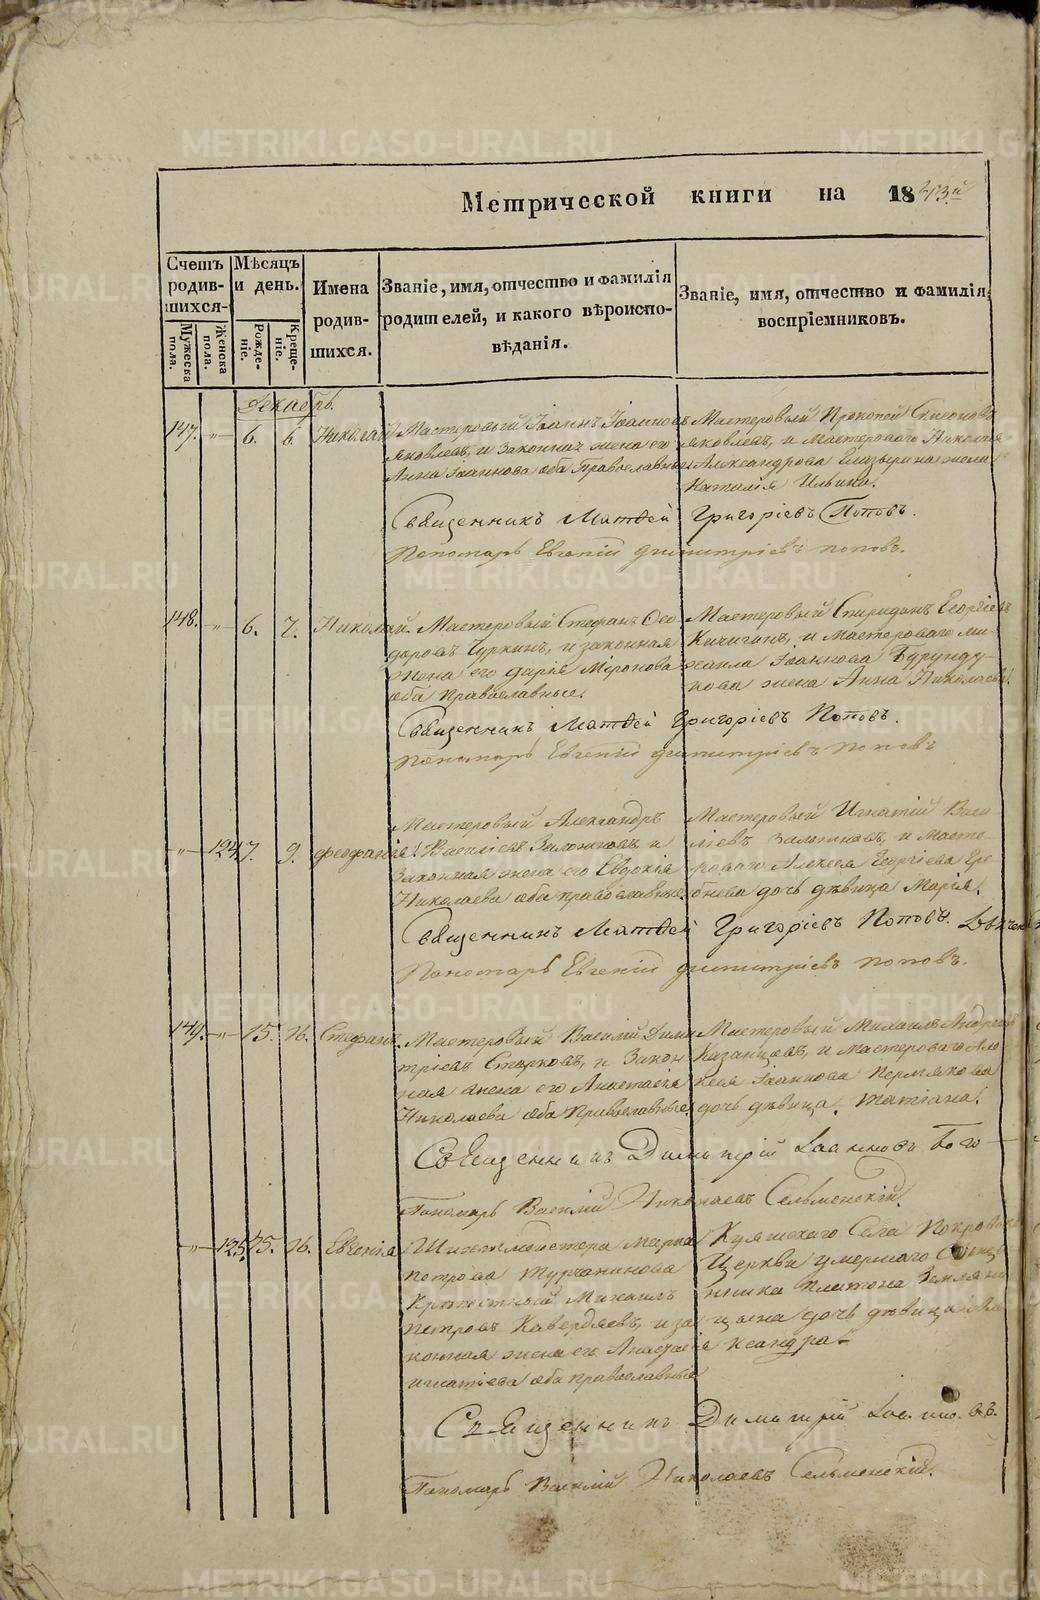 Метрической книги на 1843.й
Счетъ родив-шихся.
Мужеска пола.
Женска пола.
Мѣсяцъ и день.
Рожде-ніе.
Креще-ніе.
Имена родив-шихся.
Званіе, имя, отчество и фамилія родителей, и какого вѣроиспо-вѣданія.
Званіе, имя, отчество и фамилія воспріемниковъ.
Декабрь.
147. -"- 6. 6. Николай
Мастеровый Іоаннъ Іоанновъ
Яковлевъ, и законная жена его
Анна Іоаннова оба Православные
Мастеровый Прокопей Симеоновъ
Яковлевъ, и Мастероваго Николая
Александрова жена
Наталія Ильина.
Священникъ Матдей Григоріевъ Поповъ.
Пономарь Евгеній Димитріевъ Поповъ.
148. -"- 6. 7. Николай.
Мастеровый Стефанъ Ѳео
доровъ Чуркинъ, и законная
жена его Дарія Миронова
оба православные.
Мастеровый Спиридонъ Георгіевъ
Кичигинъ, и Мастероваго Ми-
хаила Іоаннова Бурунду-
кова жена Анна Николаева.
Священникъ Матдей Григоріевъ Поповъ.
Пономарь Евгеній Димитріевъ Поповъ
-"- 124. 7. 9. Феофанія.
Мастеровый Александръ
Василіевъ и
законная жена его Евдокія
Николаева оба православные.
Мастеровый Игнатій Васи
ліевъ и Масте-
роваго Алексея Георгіева Гре-
бнева дочь дѣвица Марія.
Священникъ Матдей Григоріевъ Поповъ.
Пономарь Евгеній Димитріевъ Поповъ.
149. -"- 15. 16. Стефанъ.
Мастеровый Василій Дими
тріевъ и закон
ная жена его Анастасія
Николаева оба Православные.
Мастеровый Михаилъ Андреевъ
Казанцевъ, и Мастероваго Але
ксея Іоаннова Пермякова
дочь дѣвица Татіана.
Священникъ Димитрій Іоанновъ Бого-
Пономарь Василій Николаевъ Сельменскій.
-"- 125. 15. 16. Евгенія
Шихтмейстера Марка
Петрова Турчанинова
Крѣпостный Михаилъ
Петровъ Кавердяевъ, и за
конная жена его Анастасія
Игнатіева оба православные
Села Покровской
Церкви умершаго Священ
ника Платона Земляни
цына дочь дѣвица Але
ксандра.
Священникъ Димитрій Іоанновъ.
Пономарь Василій Николаевъ Сельменскій.
METRIKI.GASO-URAL.RU